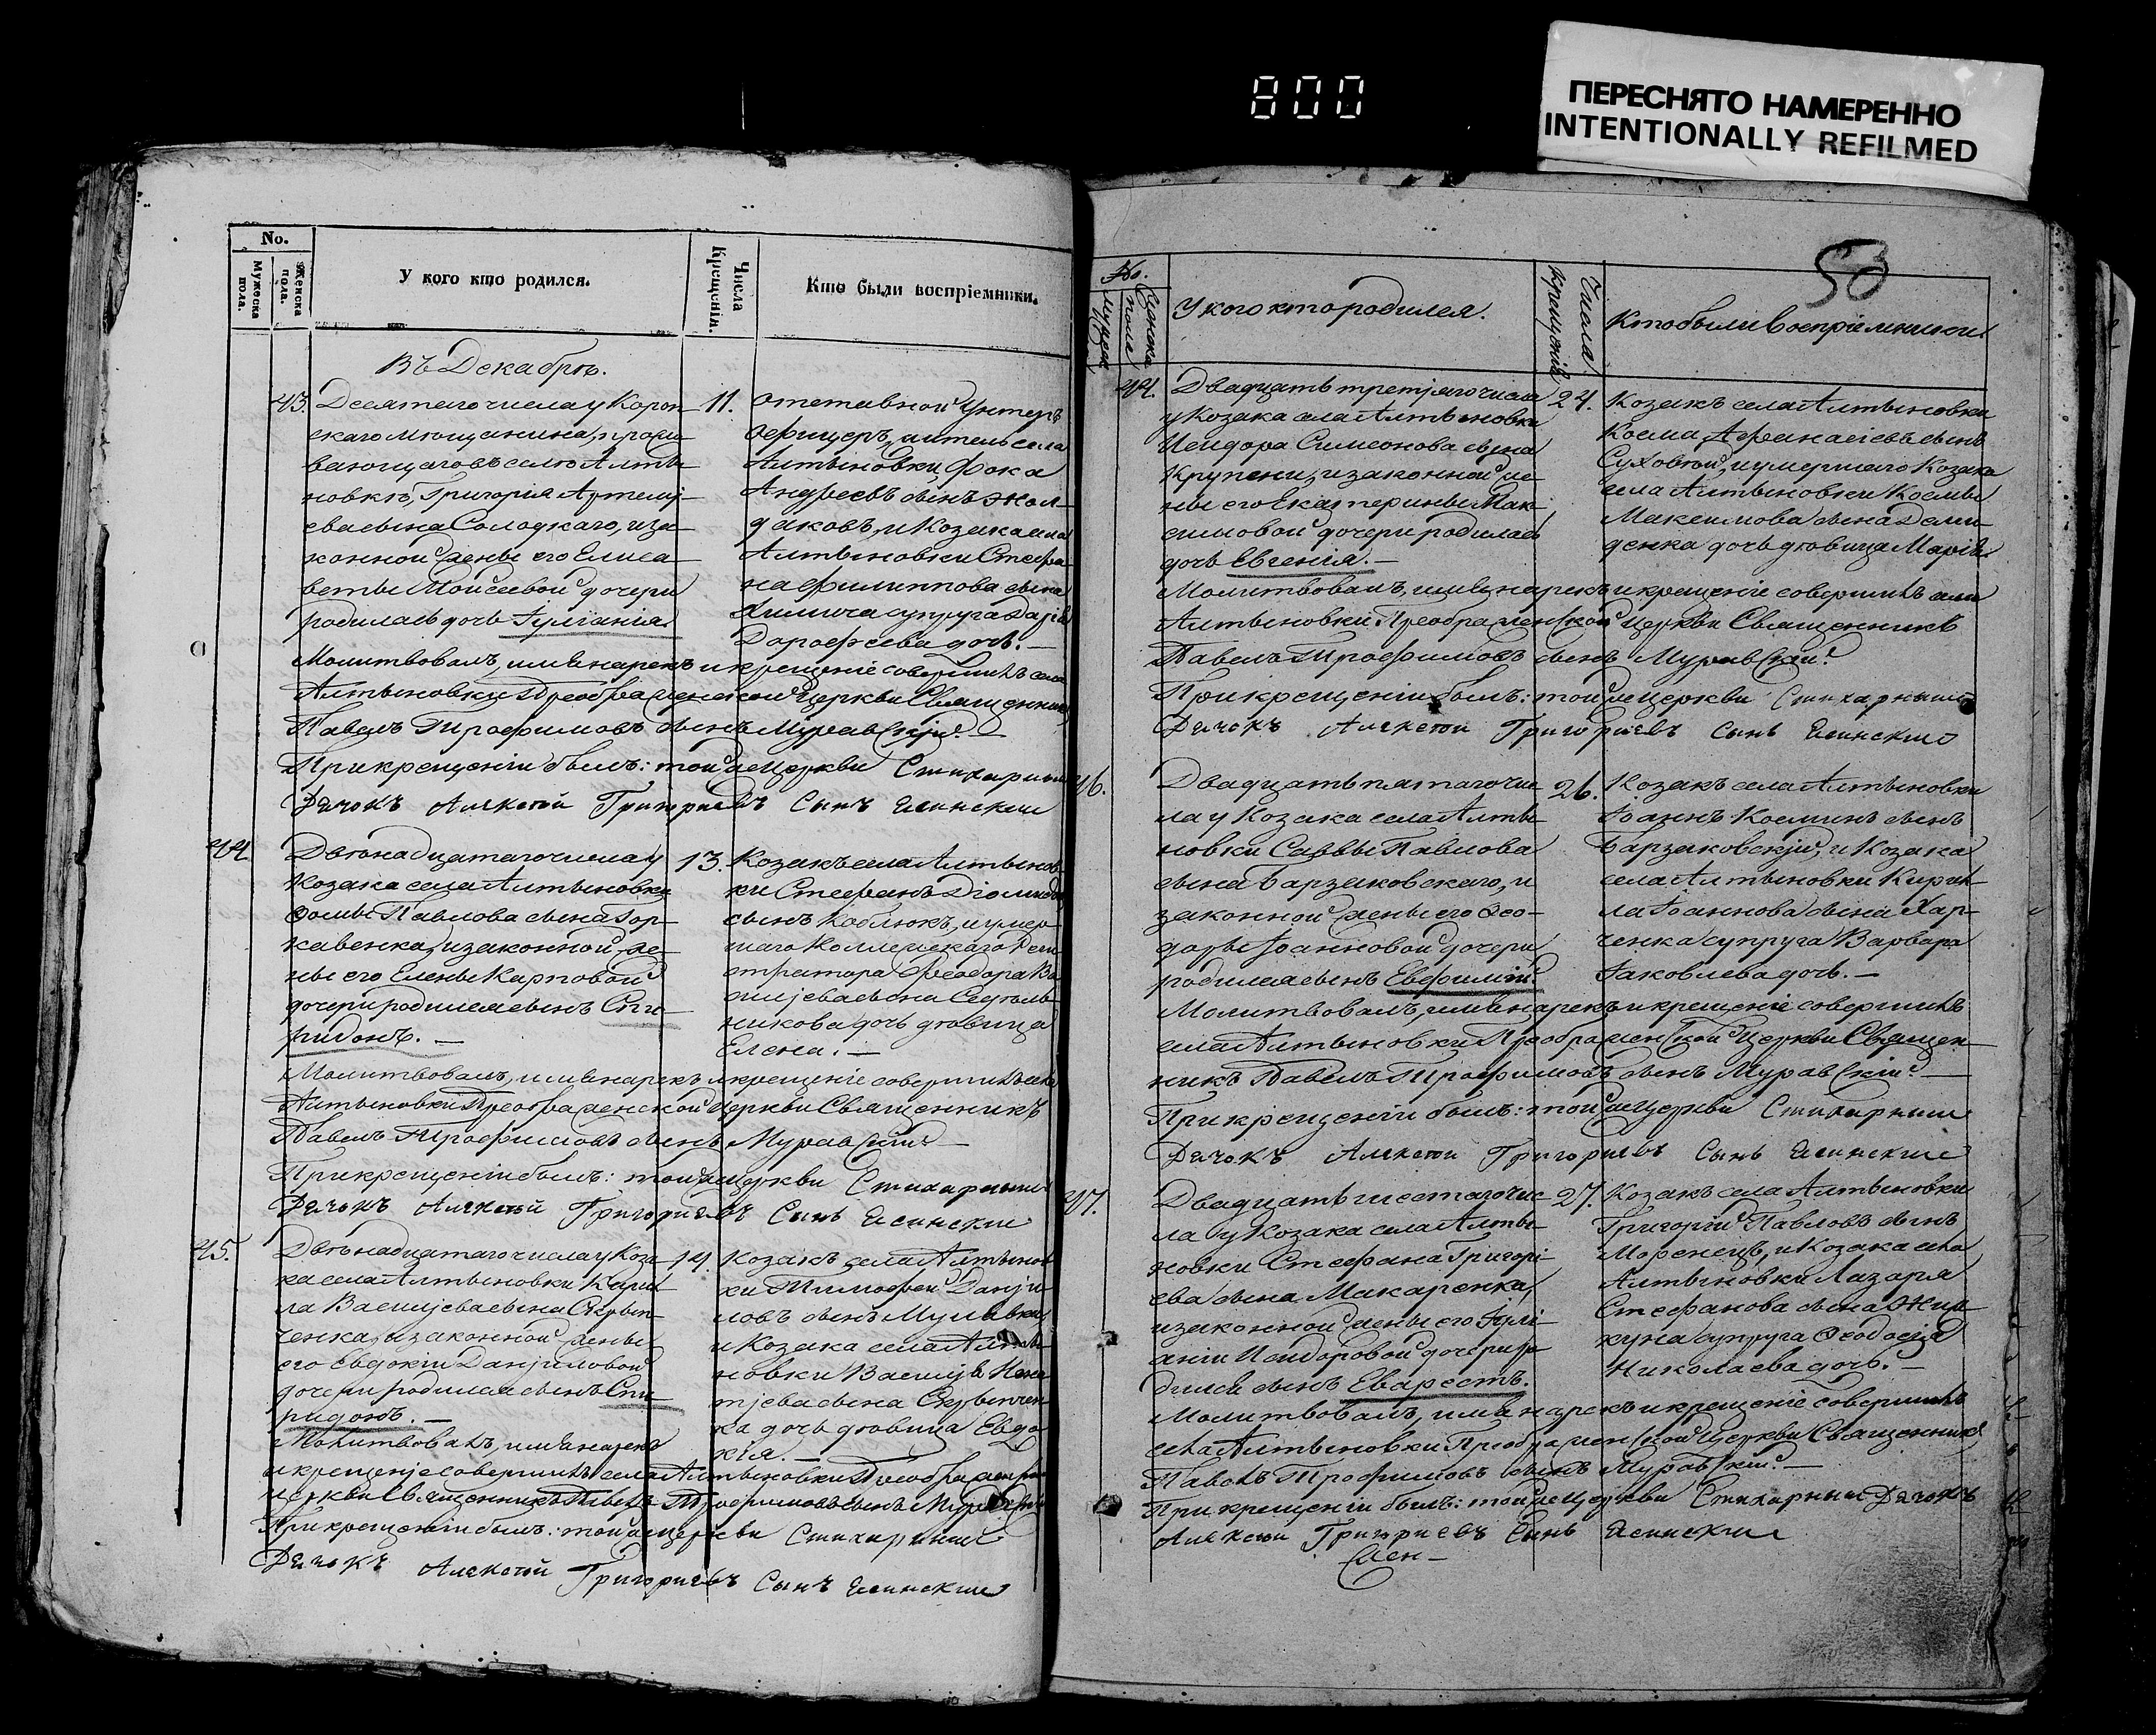 800
ПЕРЕСНЯТО НАМЕРЕННО
INTENTIONALLY REFILMED
No.
Мужеска пола.
Женска пола.
У кого кто родился.
Числа Крещенія.
Кто были воспріемники.
Въ Декабрѣ.
43.
Десятаго числа у Короп-
скаго мѣщанина, прожи-
вающаго въ селѣ Алты-
новкѣ, Григорія Артемі-
ева сына Солодкаго, и за-
конной жены его Елиса-
веты Моисеевой дочери
родилась дочь Іуліанія.
11.
Отставной Унтеръ
Офицеръ, житель села
Алтыновки, Фока
Андреевъ сынъ Жол-
даковъ, и Козака села
Алтыновки Стефа-
на Филиппова сына
супруга Дарія
Дорофеева дочь. —
Молитвовалъ, имя нарекъ и крещеніе совершилъ села
Алтыновки Преображенской Церкви Священникъ
Павелъ Трофимовъ сынъ Муравскій. —
При крещеніи былъ: той же Церкви Стихарный
Дячокъ Алексѣй Григориевъ Сынъ Ясинский
44.
Двѣнадцатаго числа у
Козака села Алтыновки
Фомы Павлова сына Гор-
кавенка, и законной же-
ны его Елены Карповой
дочери родился сынъ Спи-
ридонъ. —
13.
Козакъ села Алтынов-
ки Стефанъ Діомидовъ
сынъ Коблюкъ, и умер-
шаго Коллежскаго Реги-
стратора Феодора Ва-
силіева сына Седголь-
никова дочь дѣвица
Елена. —
Молитвовалъ, имя нарекъ и крещеніе совершилъ села
Алтыновки Преображенской Церкви Священникъ
Павелъ Трофимовъ сынъ Муравскій —
При крещеніи былъ: той же Церкви Стихарный
Дячокъ Алексѣй Григориевъ Сынъ Ясинский
45.
Двѣнадцатаго числа у Коза-
ка села Алтыновки Кирил-
ла Василіева сына Скрып-
ченка, и законной жены
его Евдокіи Даніиловой
дочери родился сынъ Спи-
ридонъ. —
14.
Козакъ села Алтынов-
ки Тимофей Даніи-
ловъ сынъ Мулявка,
и Козака села Алты-
новки Василія
сына Скрыпчен-
ка дочь дѣвица Евдо-
кія. —
Молитвовалъ, имя нарекъ
и крещеніе совершилъ села Алтыновки Преображенской
Церкви Священникъ Павелъ Трофимовъ сынъ Муравскій
При крещеніи былъ: той же церкви Стихарный
Дячокъ Алексѣй Григориевъ Сынъ Ясинский
53
№.
Мужеска
Женска
пола
У кого кто родился.
Числа крещенія
Кто были воспріемники.
44.
Двадцать третіяго числа
у Козака села Алтыновки
Исидора Симеонова сына
Крупени, и законной же-
ны его Екатерины Мак-
симовой дочери родилась
дочь Евгенія. —
24.
Козакъ села Алтыновки
Косма Афанасіевъ сынъ
Суховой, и умершаго Козака
села Алтыновки Космы
Максимова сына Деми-
денка дочь дѣвица Марія.
Молитвовалъ, имя нарекъ и крещеніе совершилъ села
Алтыновки Преображенской Церкви Священникъ
Павелъ Трофимовъ сынъ Муравскій.
При крещеніи былъ: той же Церкви Стихарный
Дячокъ Алексѣй Григориевъ Сынъ Ясинский
46.
Двадцать пятаго чис-
ла у Козака села Алты-
новки Саввы Павлова
сына Барзаковскаго, и
законной жены его Ѳео-
доры Іоанновой дочери
родился сынъ Евфимій.
26.
Козакъ села Алтыновки
Іоаннъ Косминъ сынъ
Барзаковскій, и Козака
села Алтыновки Кирил-
ла Іоаннова сына Хар-
ченка супруга Варвара
Іаковлева дочь. —
Молитвовалъ, имя нарекъ и крещеніе совершилъ
села Алтыновки Преображенской Церкви Священ-
никъ Павелъ Трофимовъ сынъ Муравскій. —
При крещеніи былъ: той же Церкви Стихарный
Дячокъ Алексѣй Григориевъ Сынъ Ясинский
47.
Двадцать шестаго чис-
ла у Козака села Алты-
новки Стефана Григорі-
ева сына Макаренка,
и законной жены его Іулі-
аніи Исидоровой дочери ро-
дился сынъ Еварестъ.
27.
Козакъ села Алтыновки
Григорій Павловъ сынъ
Моренецъ, и Козака села
Алтыновки Лазаря
Стефанова сына Жил-
куна супруга Ѳеодосія
Николаева дочь. —
Молитвовалъ, имя нарекъ и крещеніе совершилъ
села Алтыновки Преображенской Церкви Священникъ
Павелъ Трофимовъ сынъ Муравскій. —
При крещеніи былъ: той же Церкви Стихарный Дячокъ
Алексѣй Григориевъ Сынъ Ясинский